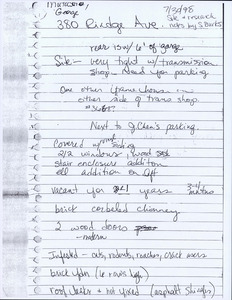 George
7/30/98
380 Ridge Ave.
Site & research
notes by S. Burks
near 15 w/ 6' of garage
Site - very tight w/ transmission
shop - Need for parking
One other frame house in
other side of trans shop
Next to J. Chen's parking.
Covered w/ siding
2/2 windows, wood
stair enclosure addition
ell addition on left
vacant for years
brick corbeled chimney
2 wood doors
-modern
Infested - cats, rodents, roaches, crack users
brick fdn (6 rows high)
roof leaks & not fixed (asphalt shingles)